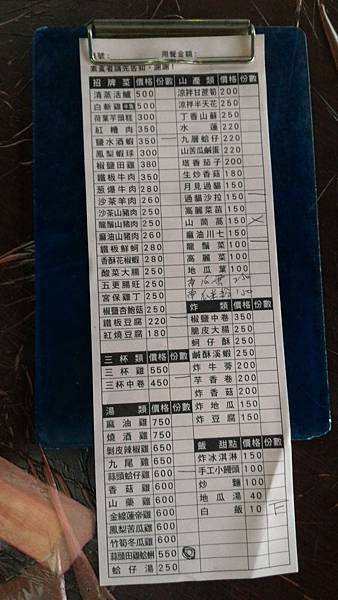 號：　用餐金額：
素食者請先告知，謝謝！
招牌菜 價格 份數
清蒸活鱸 500
白斬雞 500
荷葉芋頭糕 300
紅糟肉 350
鹽水酒蝦 350
鳳梨蝦球 380
椒鹽田雞 380
鐵板牛肉 350
蔥爆牛肉 280
沙茶羊肉 260
沙茶山豬肉 250
龍鬚山豬肉 250
麻油山豬肉 260
鐵板鮮蚵 280
香酥花椒蝦 280
酸菜大腸 250
五更腸旺 250
宮保雞丁 250
椒鹽杏鮑菇 250
鐵板豆腐 220
紅燒豆腐 180
三杯類 價格 份數
三杯雞 550
三杯中卷 450
湯類 價格 份數
麻油雞 750
燒酒雞 750
剝皮辣椒雞 650
九尾雞 650
蒜頭蛤仔雞 600
香菇雞 600
山藥雞 600
金線蓮帝雞 600
鳳梨苦瓜雞 600
竹筍冬瓜雞 600
蒜頭田雞蛤蜊 550
蛤仔湯 250
山產類 價格 份數
涼拌甘蔗筍 200
涼拌半天花 250
丁香山蘇 250
水蓮 220
九層蛤仔 220
山苦瓜鹹蛋 220
塔香茄子 200
生炒香菇 180
月見過貓 150
過貓沙拉 150
高麗菜苗 150
山茼蒿 150
麻油川七 150
龍鬚菜 100
高麗菜 100
地瓜葉 100
炸類 價格 份數
椒鹽中卷 350
脆皮大腸 250
蚵仔酥 250
鹹酥溪蝦 250
炸牛蒡 200
芋香卷 200
炸香菇 200
炸地瓜 150
炸豆腐 150
飯甜點 價格 份數
炸冰淇淋 150
手工小饅頭 100
炒麵 100
地瓜湯 40
白飯 10